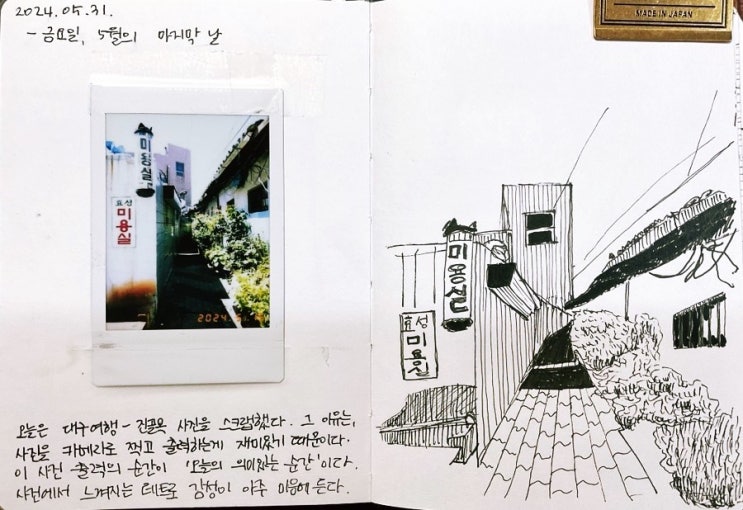 2024.05.31.
- 금요일, 5월의 마지막 날
미용실
효성
미용실
2024.5.
오늘은 대구여행 - 진골목 사진을 스크랩했다. 그 이유는,
사진을 카메라로 찍고 출력하는게 재미있기 때문이다.
이 사진 출력의 순간이 '오늘의 의미있는 순간'이다.
사진에서 느껴지는 레트로 감성이 아주 마음에 든다.
MADE IN JAPAN
미용실
효성
미용실